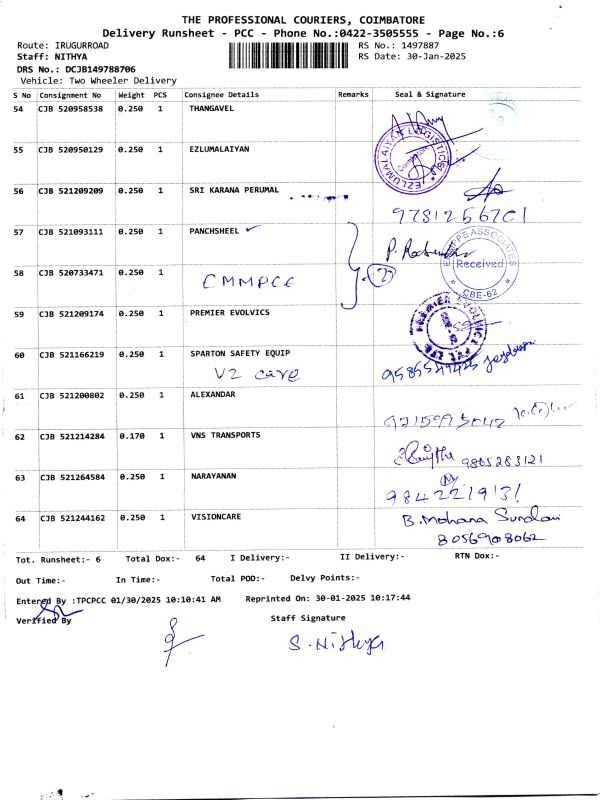 THE PROFESSIONAL COURIERS, COIMBATORE
Delivery Runsheet - PCC - Phone No.:0422-3505555 - Page No.:6
Route: IRUGURROAD RS No.: 1497887
Staff: NITHYA RS Date: 30-Jan-2025
DRS No.: DCJB149788706
Vehicle: Two Wheeler Delivery
S No Consignment No Weight PCS Consignee Details Remarks Seal & Signature
54 CJB 520958538 0.250 1 THANGAVEL
55 CJB 520950129 0.250 1 EZLUMALAIYAN
EZLUMALAIYAN LOGISTICS
56 CJB 521209209 0.250 1 SRI KARANA PERUMAL
9781256701
57 CJB 521093111 0.250 1 PANCHSHEEL
58 CJB 520733471 0.250 1
CMMPCC
2
ASSOCIATES
Received
CBE-62
59 CJB 521209174 0.250 1 PREMIER EVOLVICS
PREMIER EVOLVICS PVT LTD
60 CJB 521166219 0.250 1 SPARTON SAFETY EQUIP
V2 care
61 CJB 521200802 0.250 1 ALEXANDAR
62 CJB 521214284 0.170 1 VNS TRANSPORTS
9865283121
63 CJB 521264584 0.250 1 NARAYANAN
9842219131
64 CJB 521244162 0.250 1 VISIONCARE B. Mohana Sundari
8056908062
Tot. Runsheet:- 6 Total Dox:- 64 I Delivery:- II Delivery:- RTN Dox:-
Out Time:- In Time:- Total POD:- Delvy Points:-
Entered By :TPCPCC 01/30/2025 10:10:41 AM Reprinted On: 30-01-2025 10:17:44
Verified By Staff Signature
S. Nithya